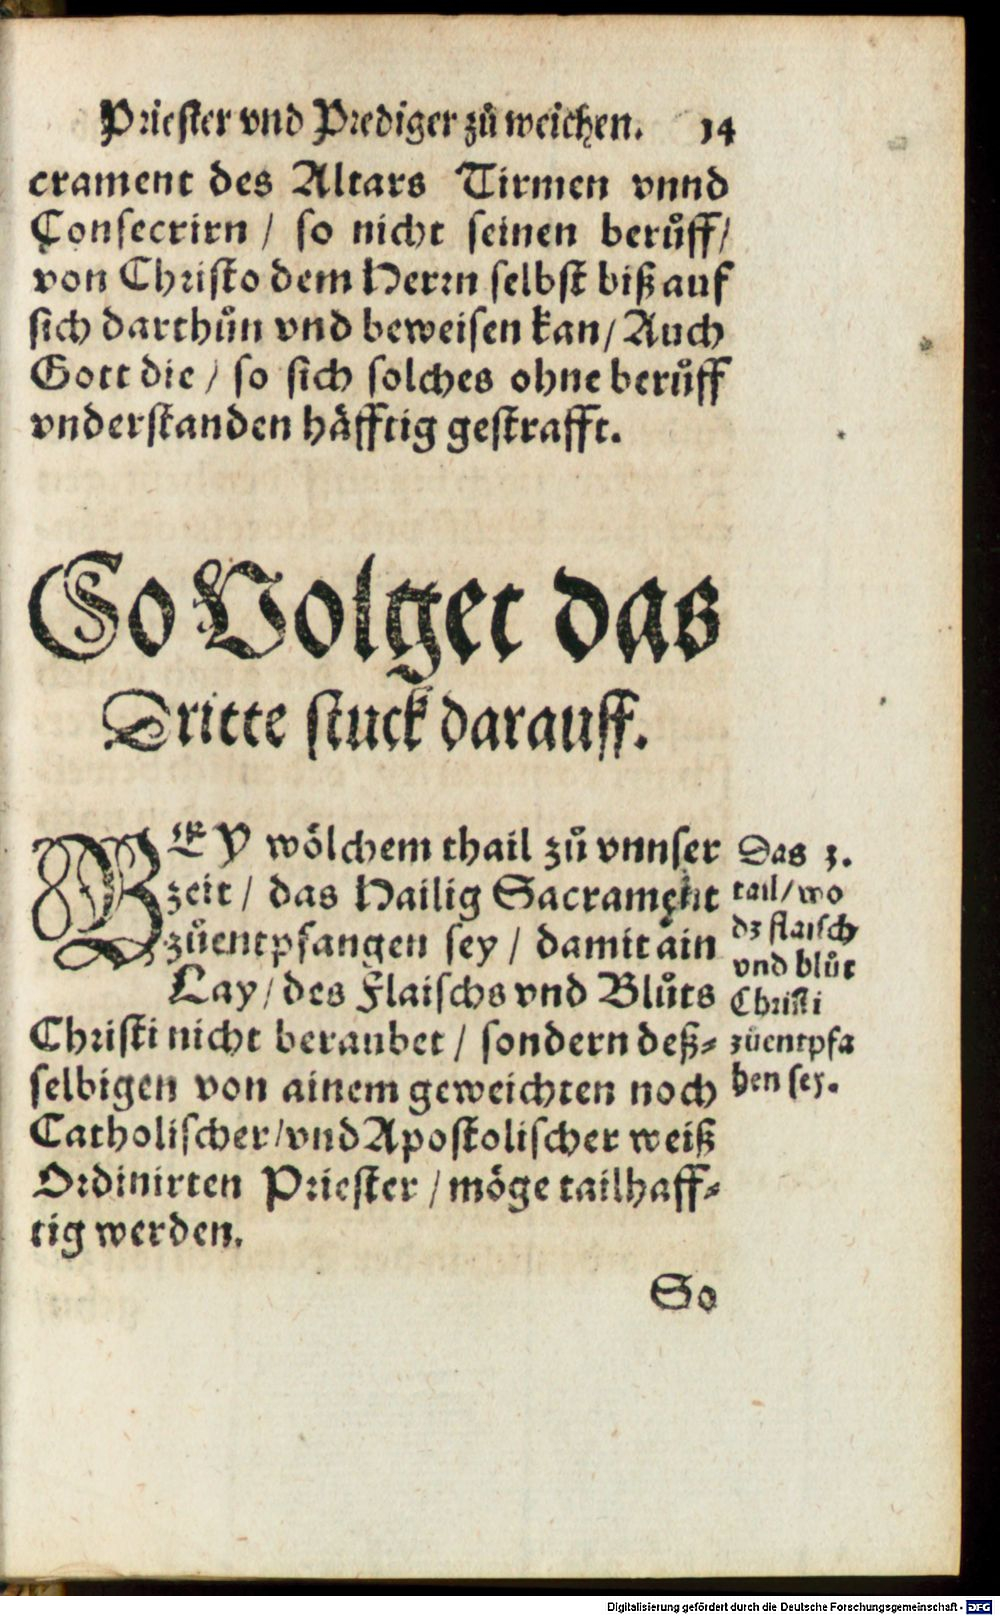 Priester vnd Prediger zů weichen. 14
crament des Altars Tirmen vnnd
Consecrirn / so nicht seinen berůff /
von Christo dem Herrn selbst biß auf
sich darthůn vnd beweisen kan / Auch
Gott die / so sich solches ohne berůff
vnderstanden häfftig gestrafft.
So Volget das
Dritte stuck darauff.
BEY wölchem thail zů vnnser
zeit / das Hailig Sacrament
zůentpfangen sey / damit ain
Lay / des Flaischs vnd Blůts
Christi nicht beraubet / sondern deß⸗
selbigen von ainem geweichten noch
Catholischer / vnd Apostolischer weiß
Ordinirten Priester / möge tailhaff⸗
tig werden.
Das 3.
tail / wo
dz flaisch
vnd blůt
Christi
zůentpfa
hen sey.
So
Digitalisierung gefördert durch die Deutsche Forschungsgemeinschaft - DFG